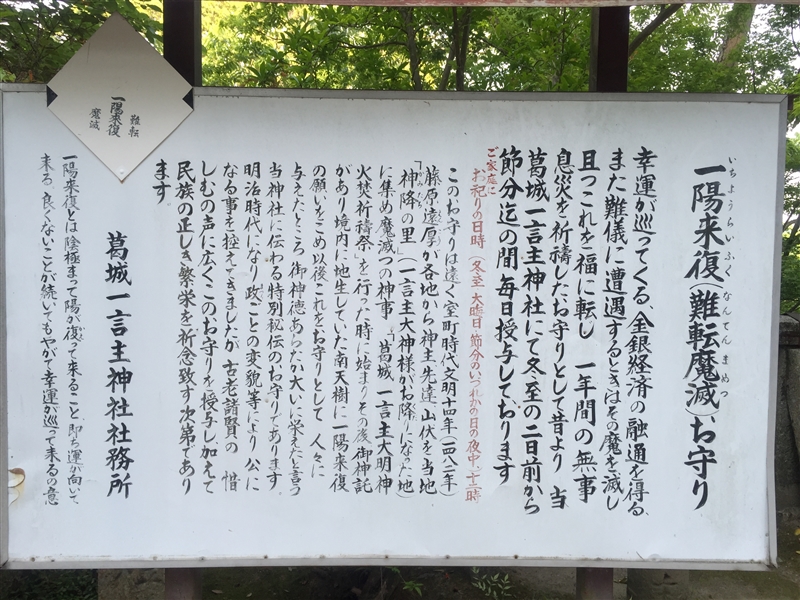 一陽来復(難転魔滅)お守り
いちようらいふく なんてんまめつ
幸運が巡ってくる、金銀経済の融通を得る、
また難儀に遭遇するときはその魔を滅し
且つこれを福に転し 一年間の無事
息災を祈祷したお守りとして昔より 当
葛城一言主神社にて冬至の二日前から
節分迄の間、毎日授与しております
ご家庭に
お祀りの日時 (冬至 大晦日 節分のいづれかの日の夜中、十二時
このお守りは遠く室町時代文明十四年(一四八二年)
藤原遠厚が各地から神主先達 山伏を当地
「神降の里」(一言主大神様がお降りになった地)
に集め魔滅つの神事 「葛城一言主大明神
火焚き祈祷祭」を行った時に始まりその後御神託
があり境内に地生していた南天樹に一陽来復
の願いをこめ以後これをお守りとして 人々に
与えたところ御神徳あらたか大いに栄えたと言う
当神社に伝わる特別秘伝のお守りであります。
明治時代になり政ごとの変貌等により公に
なる事を控えてきましたが 古老諸賢の 惜
しむの声に広くこのお守りを授与し加えて
民族の正しき繁栄を祈念致す次第であり
ます。
葛城一言主神社社務所
一陽来復とは陰極まって陽が復って来ること 即ち運が向いて
来る、良くないことが続いてもやがて幸運が巡って来るの意
難転
一陽来復
魔滅